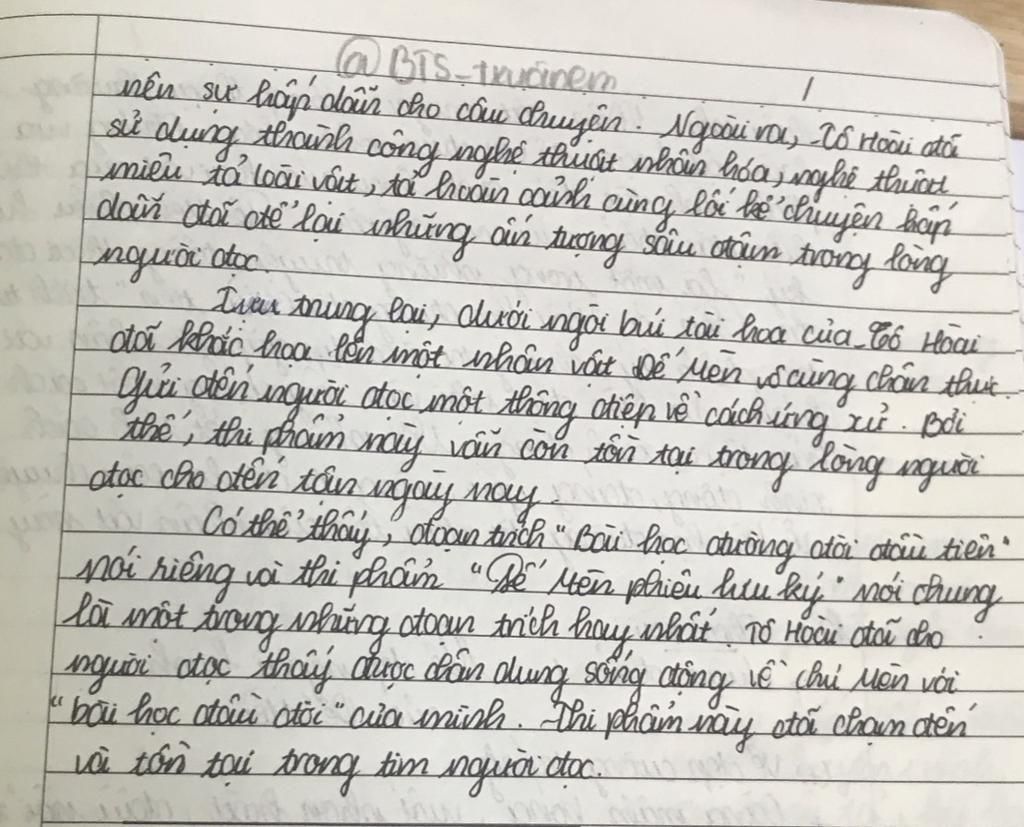 @BTS_truiănem 1
nên sự hấp dẫn cho câu chuyện. Ngoài ra, Tô Hoài đã
sử dụng thành công nghệ thuật nhân hóa, nghệ thuật
miêu tả loài vật, tả hoàn cảnh cùng lối kể chuyện hấp
dẫn đã để lại những ấn tượng sâu đậm trong lòng
người đọc.
trung lại, dưới ngòi bút tài hoa của Tô Hoài
đã khắc họa lên một nhân vật Dế Mèn vô cùng chân thực.
Gửi đến người đọc một thông điệp về cách ứng xử. Bởi
thế, thi phẩm này vẫn còn tồn tại trong lòng người
đọc cho đến tận ngày nay.
Có thể thấy, đoạn trích "Bài học đường đời đầu tiên"
nói riêng và thi phẩm "Dế Mèn phiêu lưu ký" nói chung
là một trong những đoạn trích hay nhất. Tô Hoài đã cho
người đọc thấy được chân dung sống động về chú Mèn với
"bài học đầu đời" của mình. Thi phẩm này đã chạm đến
và tồn tại trong tim người đọc.